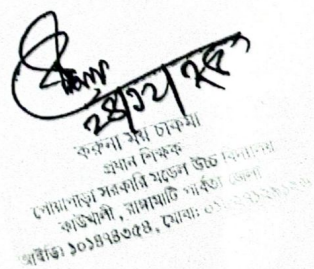 ২৪/১২/২৫
করুনা ময় চাকমা
প্রধান শিক্ষক
পোয়াপাড়া সরকারি মডেল উচ্চ বিদ্যালয়
কাউখালী, রাঙ্গামাটি পার্বত্য জেলা
আইডি: ১০১৪৭৩৫৪, মোবা: